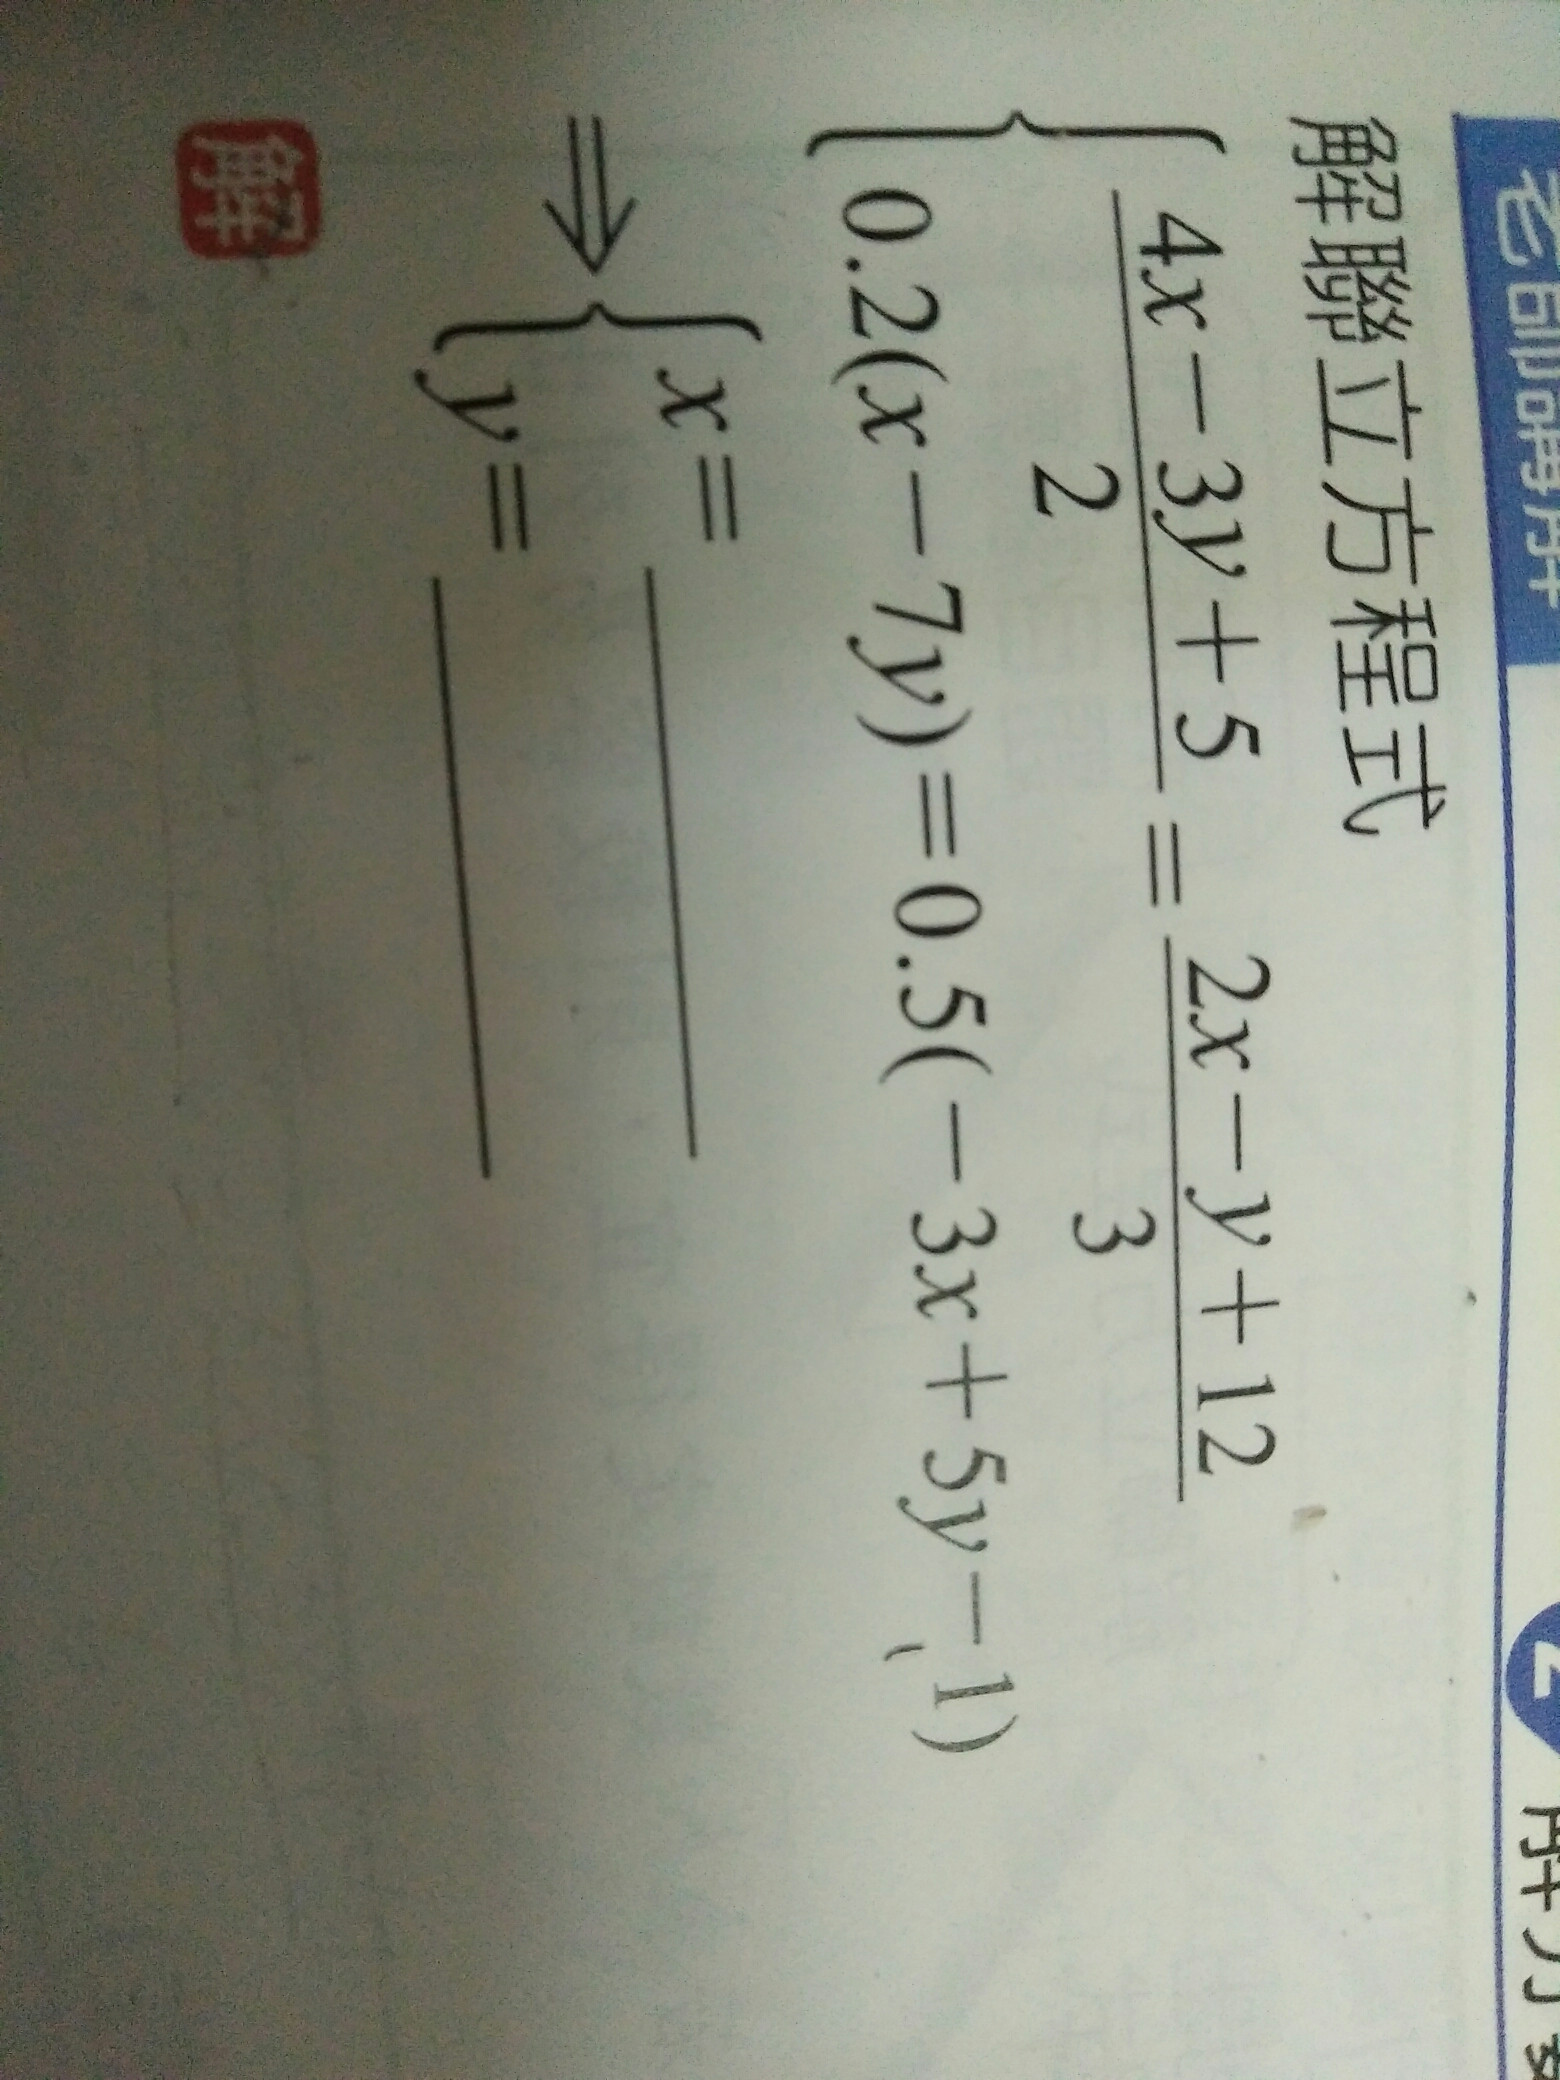 老師講解
2
解聯立方程式
{ (4x-3y+5)/2 = (2x-y+12)/3
0.2(x-7y)=0.5(-3x+5y-1)
⇒ { x=
y=
解